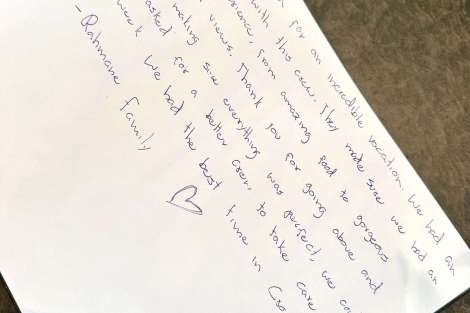 for an incredible vacation. We had an
with this crew. They made sure we had an
from amazing food to gorgeous
views. Thank you for going above and
making sure everything was perfect, we
asked for a better crew to take care
week we had the best time in
- Rahmane Family